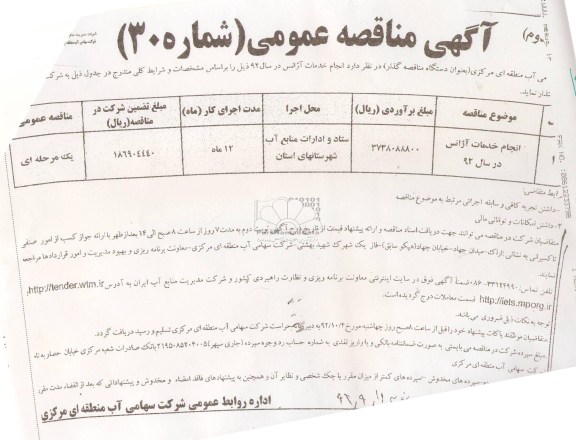 آگهی مناقصه عمومی (شماره ۳۰)
وم)
می آب منطقه ای مرکزی (بعنوان دستگاه مناقصه گذار) در نظر دارد انجام خدمات آژانس در سال ۹۲ ذیل را براساس مشخصات و شرایط کلی مندرج در جدول ذیل به شرکت
گذار نماید.
موضوع مناقصه
مبلغ برآوردی (ریال)
محل اجرا
مدت اجرای کار (ماه)
مبلغ تضمین شرکت در مناقصه (ریال)
مناقصه عمومی
۱
انجام خدمات آژانس در سال ۹۲
۳۷۳۸۰۸۸۸۰۰
ستاد و ادارات منابع آب شهرستانهای استان
۱۲ ماه
۱۸۶۹۰۴۴۴۰
یک مرحله ای
رایط متقاضی:
-داشتن تجربه کافی و سابقه اجرائی مرتبط به موضوع مناقصه
۲-داشتن امکانات و توانائی مالی
متقاضیان شرکت در مناقصه می توانند جهت دریافت اسناد مناقصه و ارائه پیشنهاد قیمت از تاریخ درج آگهی نوبت دوم به مدت ۷ روز از ساعت ۸ صبح الی ۱۴ بعدازظهر با ارائه جواز کسب از امور صنفی
تاکسیرانی به نشانی: اراک-میدان جهاد-خیابان جهاد (هپکو سابق)-فاز یک شهرک شهید بهشتی-شرکت سهامی آب منطقه ای مرکزی-معاونت برنامه ریزی و بهبود مدیریت و امور قراردادها مراجعه
نمایند.
تلفن تماس: ۳۳۱۲۴۹۹۰-۰۸۶ ضمناً آگهی فوق در سایت اینترنتی معاونت برنامه ریزی و نظارت راهبردی کشور و شرکت مدیریت منابع آب ایران به آدرس http://tender.wrm.ir,
http://iets.mporg.ir قسمت معاملات درج گردیده است.
توجه به نکات ذیل ضروری می باشد.
متقاضیان موظفند پاکات پیشنهاد خود را قبل از ساعت ۸ صبح روز چهارشنبه مورخ ۹۲/۱۰/۴ به دبیرخانه حراست شرکت سهامی آب منطقه ای مرکزی تسلیم و رسید دریافت گردد.
مبلغ سپرده شرکت در مناقصه می بایستی به صورت ضمانتنامه بانکی و یا واریز نقدی به شماره حساب رد وجوه سپرده (جاری سپهر) ۲۱۹۵۰۸۵۲۰۴۰۰۵ بانک صادرات شعبه مرکزی خیابان حصار به نام
شرکت سهامی آب منطقه ای مرکزی
سپرده های مخدوش -سپرده های کمتر از میزان مقرر یا چک شخصی و نظایر آن و همچنین به پیشنهادهای فاقد امضاء و مخدوش و پیشنهاداتی که بعد از انقضاء مدت مقرر
اداره روابط عمومی شرکت سهامی آب منطقه ای مرکزی